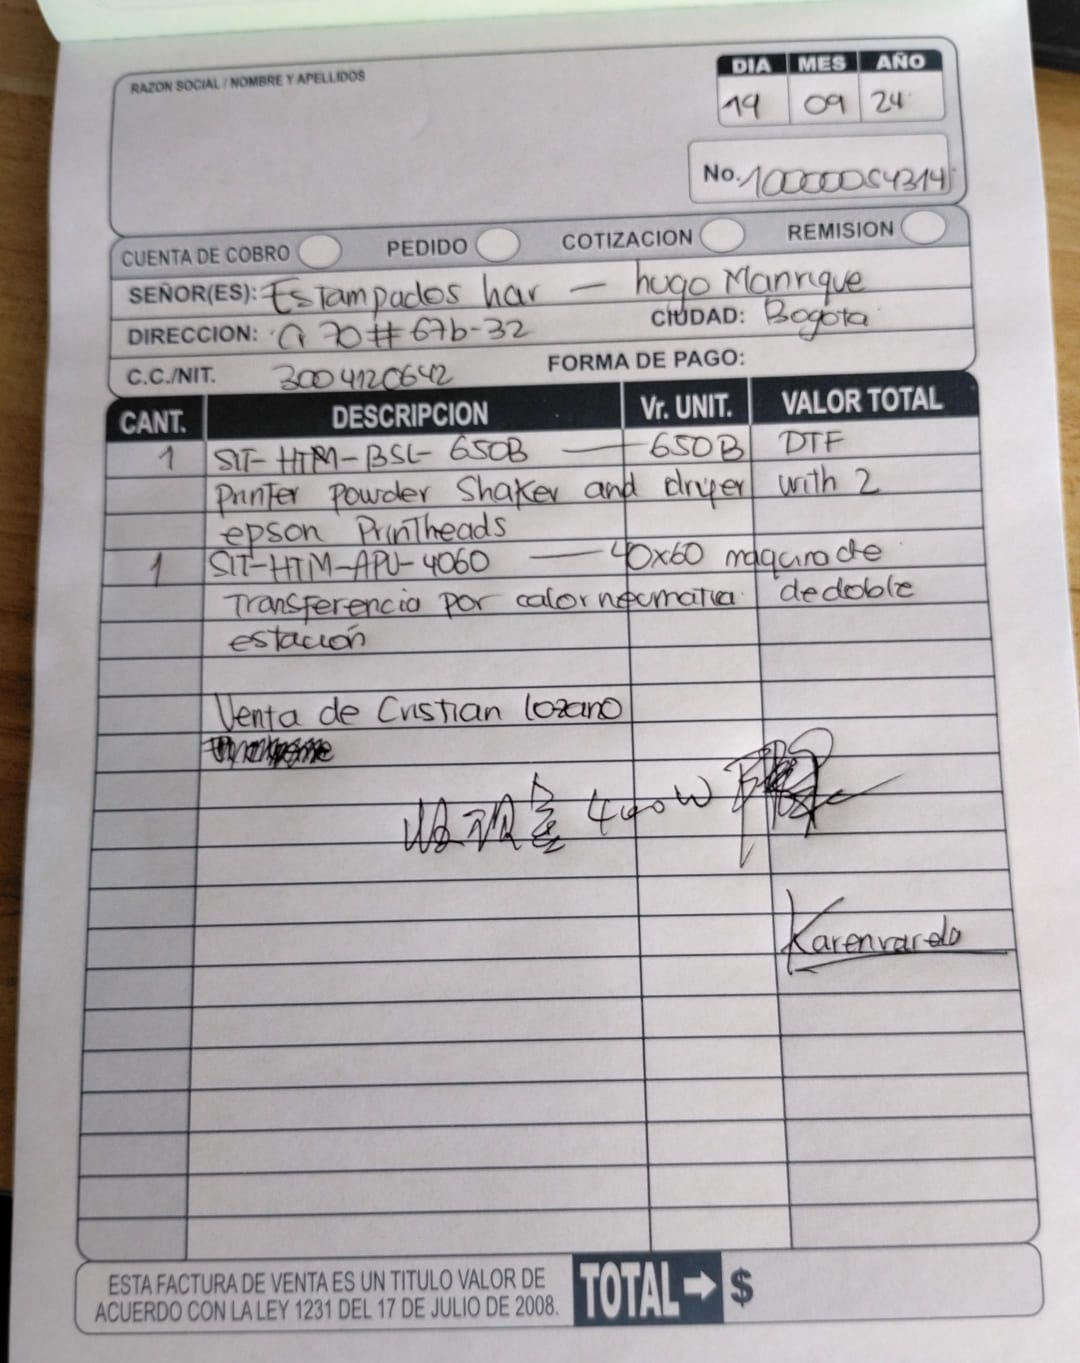 RAZON SOCIAL / NOMBRE Y APELLIDOS
DIA MES AÑO
19 09 24
No. 10000054314
CUENTA DE COBRO PEDIDO COTIZACION REMISION
SEÑOR(ES): Estampados har — hugo Manrique
DIRECCION: 70 # 67b-32 CIUDAD: Bogota
C.C./NIT. 3004120642 FORMA DE PAGO:
CANT. DESCRIPCION Vr. UNIT. VALOR TOTAL
1 SIT-HTM-BSL-650B — 650B DTF
Printer Powder Shaker and dryer with 2
epson Printheads
1 SIT-HTM-APU-4060 — 40x60 maquina de
Transferencia por calor neumatica de doble
estación
Venta de Cristian lozano
收 400W
Karen
ESTA FACTURA DE VENTA ES UN TITULO VALOR DE
ACUERDO CON LA LEY 1231 DEL 17 DE JULIO DE 2008.
TOTAL → $